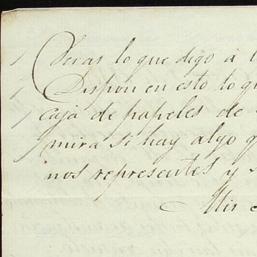 Veras lo que digo à l
Dispon en esto lo qu
caja de papeles de
mira si hay algo q
nos representes y s
Mir